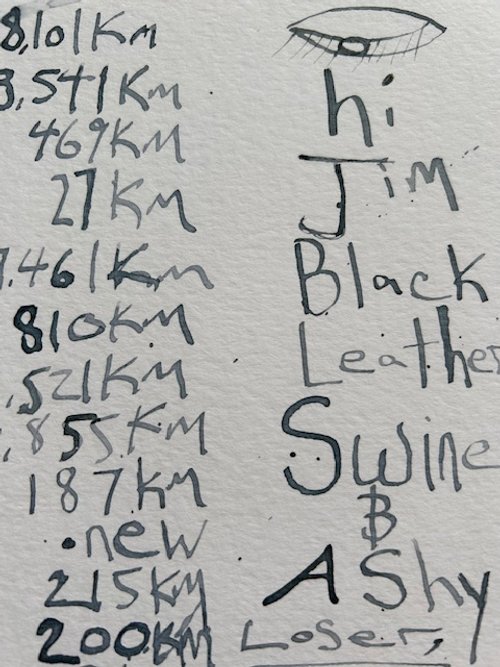 8,101Km
3,541Km
469Km
27Km
7.461Km
810Km
,521Km
,855Km
187Km
.new
215Km
200KM
hi
Jim
Black
Leather
Swine
B
A Shy
Loser,